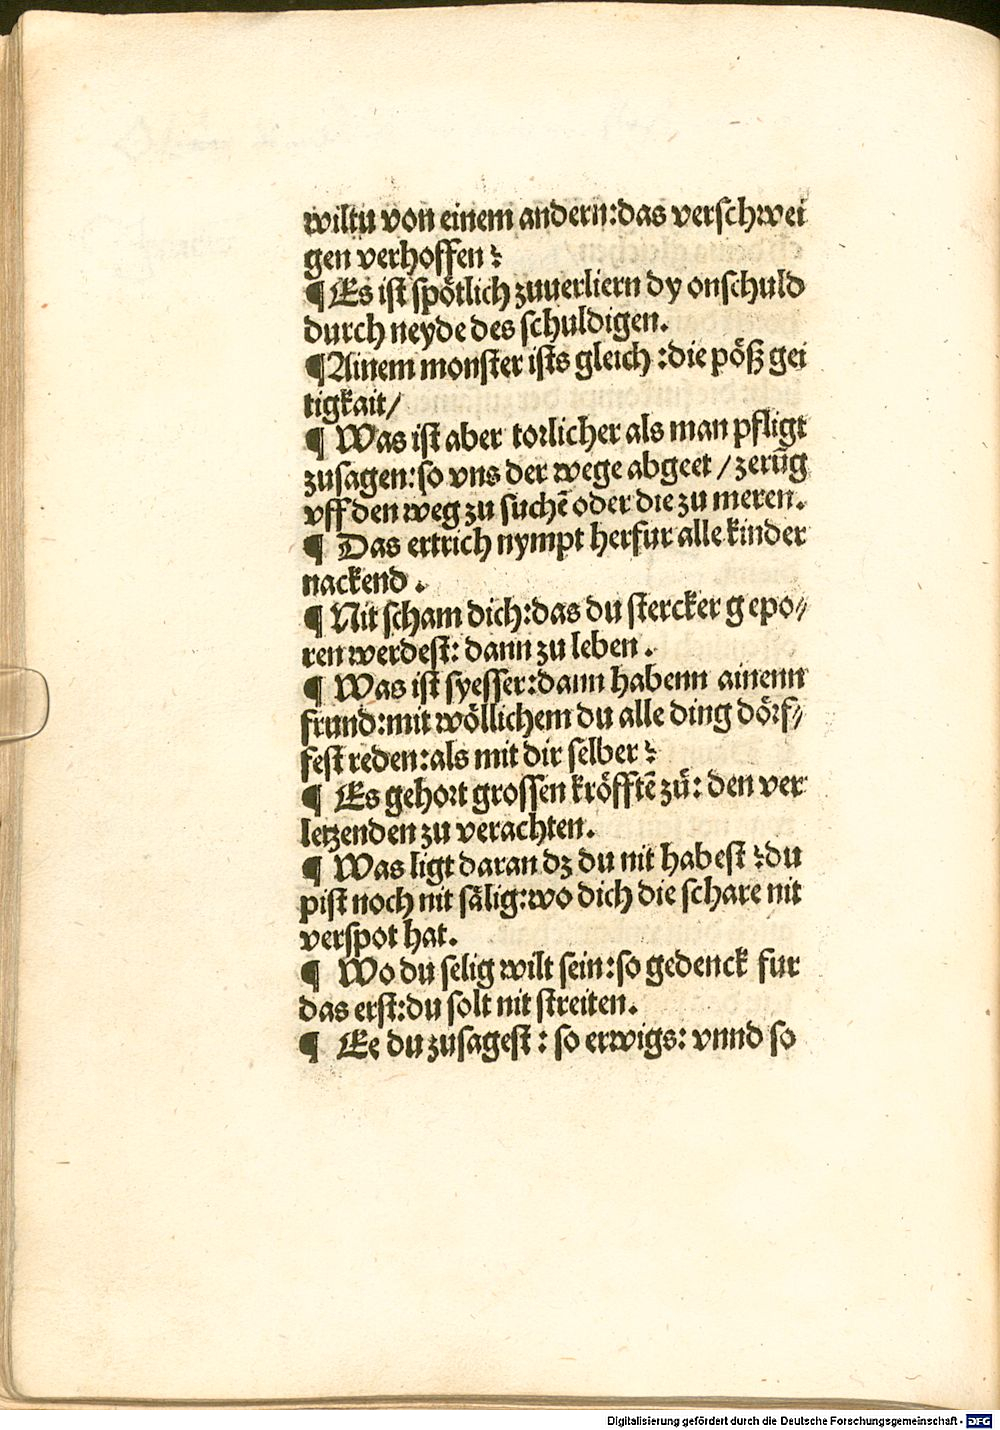 wiltu von einem andern:das verschwei
gen verhoffen ⁊
¶Es ist spötlich zuuerliern dy onschuld
durch neyde des schuldigen.
¶Ainem monster ists gleich :die pöß gei
tigkait/
¶ Was ist aber torlicher als man pfligt
zusagen:so vns der wege abgeet /zerüg
vff den weg zu suchē oder die zu meren.
¶ Das ertrich nympt herfur alle kinder
nackend .
¶ Nit scham dich:das du stercker gepo⸗
ren werdest: dann zu leben .
¶ Was ist syesser:dann habenn ainenn
frund:mit wöllichem du alle ding dörf⸗
fest reden:als mit dir selber ⁊
¶ Es gehort grossen kröfftē zů: den ver
letzenden zu verachten.
¶ Was ligt daran dz du nit habest ⁊du
pist noch nit sälig:wo dich die schare nit
verspot hat.
¶ Wo du selig wilt sein:so gedenck fur
das erst:du solt nit streiten.
¶ Ee du zusagest : so erwigs: vnnd so
Digitalisierung gefördert durch die Deutsche Forschungsgemeinschaft - DFG